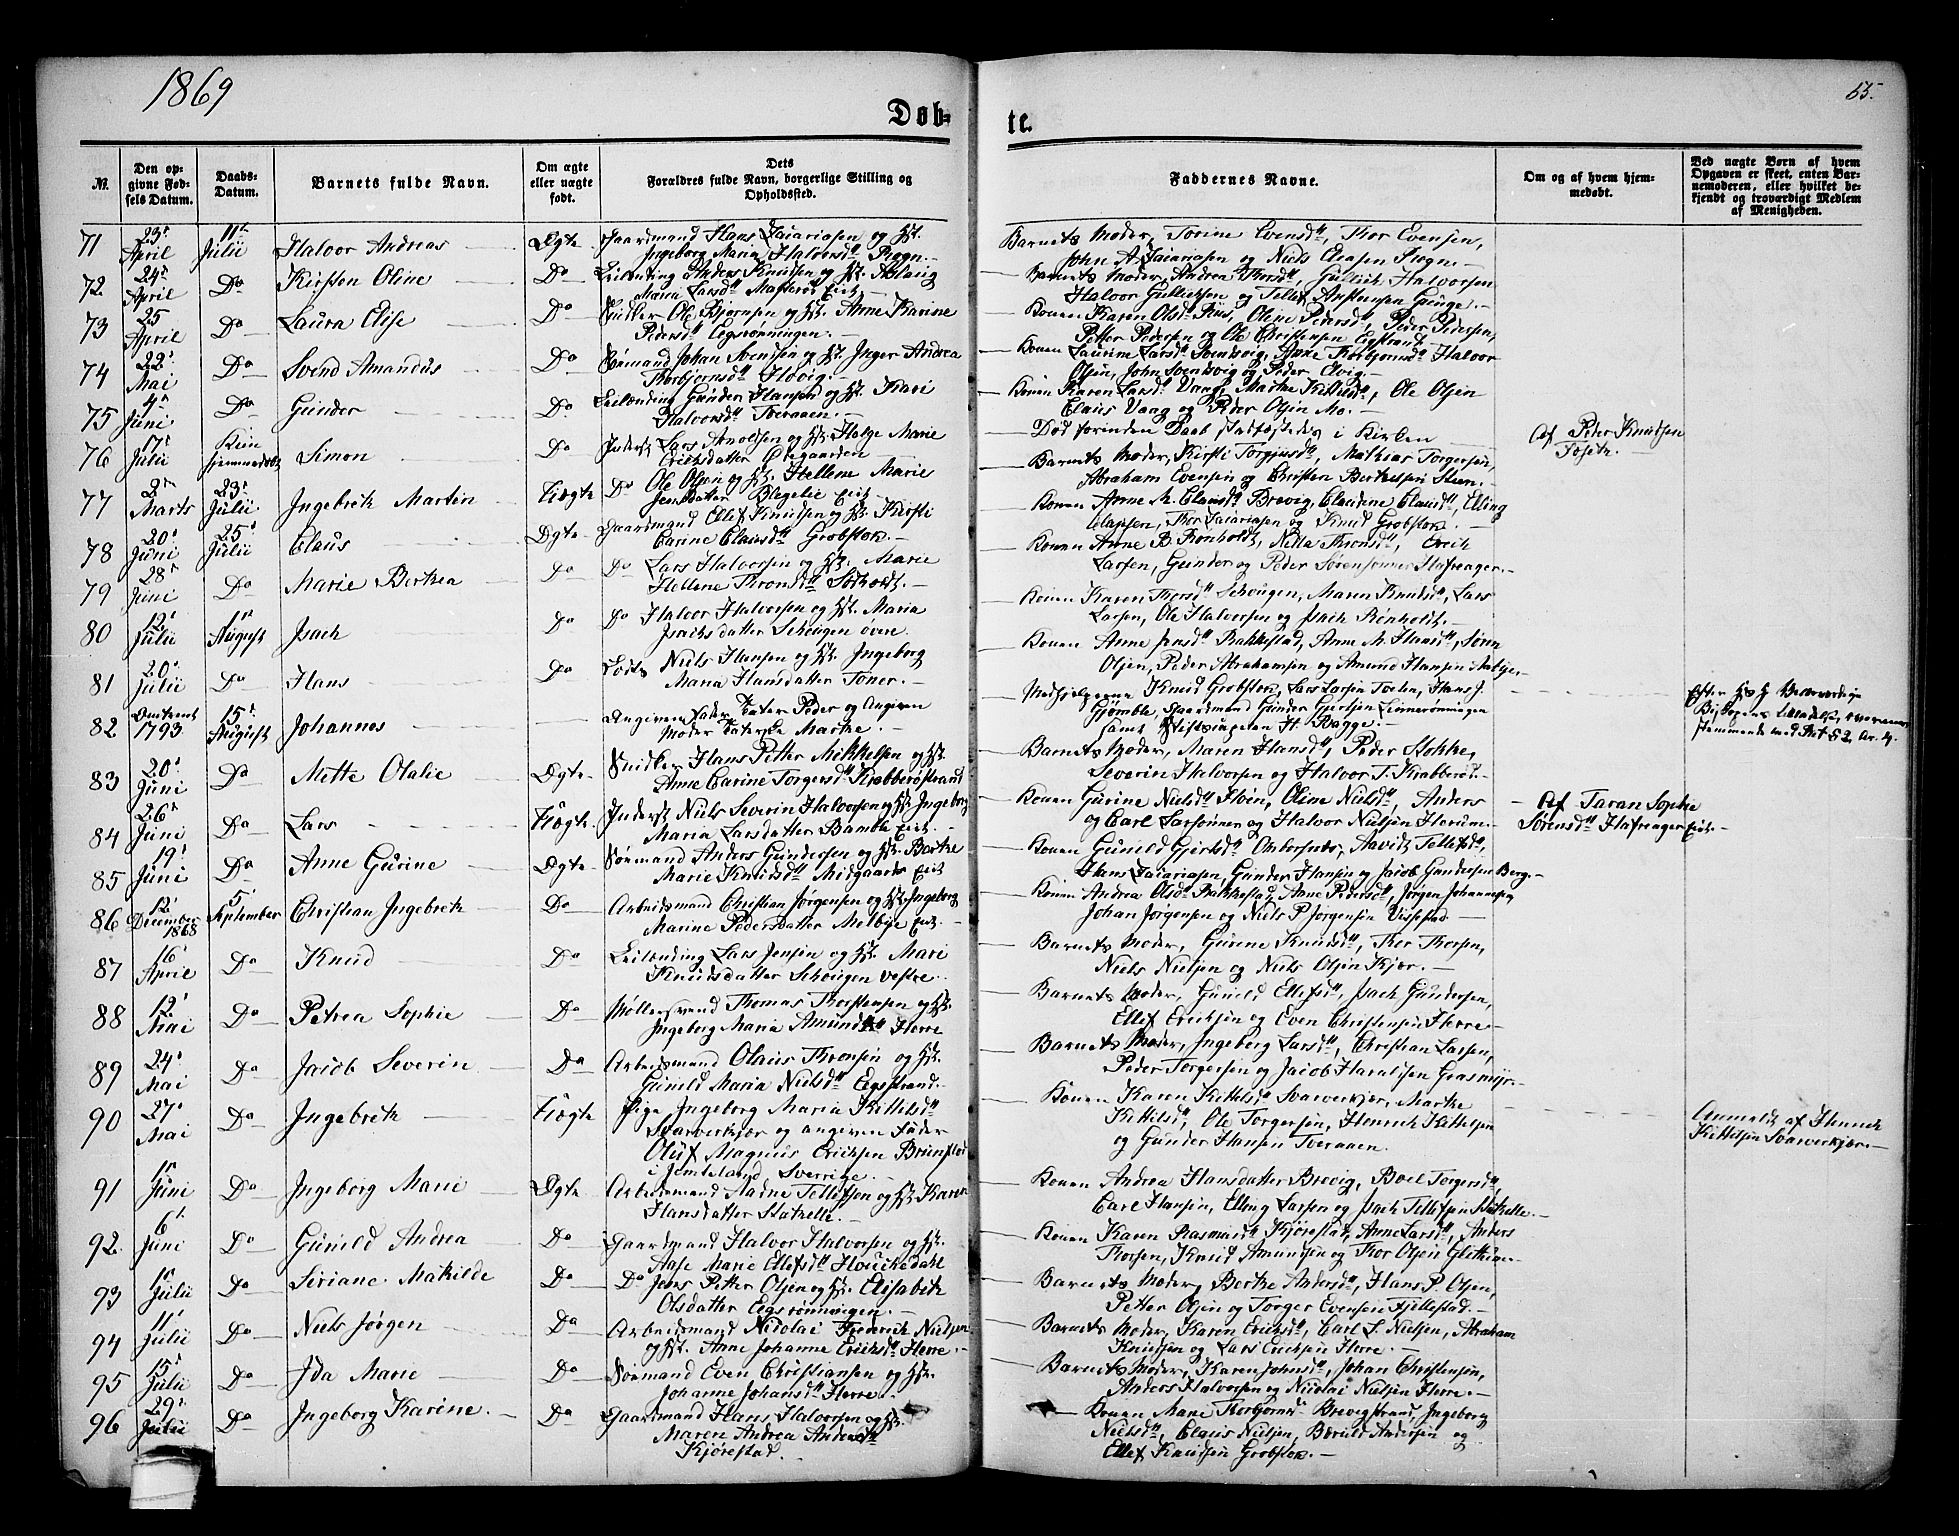 1869
55.
Døb-
te.
№.
Den op-
givne Fød-
sels Datum.
Daabs-
Datum.
Barnets fulde Navn.
Om ægte
eller uægte
født.
Dets
Forældres fulde Navn, borgerlige Stilling og
Opholdssted.
Faddernes Navne.
Om og af hvem hjem-
medøbt.
Ved uægte Børn af hvem
Opgaven er skeet, enten Bar-
nemoderen, eller hvilket be-
kjendt og troværdigt Medlem
af Menigheden.
71 23 April 11 Julii Halvor Andreas Ægte Gaardmand Hans Zaiariasen og
Ingeborg Maria Halvorsd Rogn.
Barnets Moder, Torine Evensd, Thor Evensen,
John A Zaiariasen og Niels Eleasen Rogn.
72 24 April Do Kirsten Oline Do Leilending Anders Knudsen og Aslaug
Maria Larsd
Barnets Moder, Andrea Thorsd, Gullich Halvorsen
Halvor Gullichsen og Tellef Austensen
73 25 April Do Laura Elise Do Ole Bjørnsen og Anne Karine
Pedersd Eegsrønningen.
Konen Karen Olsd, Oline Pedersd, Peder Pedersen,
Petter Pedersen og Ole Christensen Eegstrand
74 22 Mai Do Svend Amandus Do Sømand Johan Svendsen og Inger Andrea
Thorbjørnsd
Konen Laurine Larsd Svenkvig, Thorbjørnsd, Halvor
Olsen, John Svenkvig og Peder
75 4 Juni Do Gunder Do Leilænding Gunder Hansen og Kari
Halvorsd Tveraaen.
Konen Karen Larsd Vaag, Marthe Kittilsd, Ole Olsen
Claus Vaag og Peder Olsen Mo.
76 17 Julii Kun hjemmedøbt Simon Do Inderst Lars Arnoldsen og Helge Marie
Erichsdatter
Død forinden Daab stadfæstedes i Kirken
Af Peder Knudsen
77 2 Marts 23 Julii Ingebreth Martin Uægte Do Ole Olsen og Hellene Marie
Jensdatter
Barnets Moder, Kirsti Torgjusd, Mathias Torgersen,
Abraham Evensen og Christen Berthelsen Steen.
78 20 Juni 25 Julii Claus Ægte Gaardmand Ellef Knudsen og Kirsti
Carine Clausd Grobstok.
Konen Anne M. Clausd Brevig, Claudene Clausd, Elling
Clausen, Thor Zaiariasen og Knud Grobstok.
79 28 Juni Do Marie Berthea Do Do Lars Halvorsen og Marie
Hellene Thronsd
Konen Anne B. Rønholdt, Nilla Thronsd, Erik
Larsen, Gunder og Peder Sørensønner Hafreager.
80 12 Julii 1 August Isach Do Do Halvor Halvorsen og Maria
Isachsdatter Schougen øvre.
Konen Karen Thorsd Schougen, Maren Knudsd, Lars
Larsen, Ole Halvorsen og Isach Rønholdt.
81 20 Julii Do Hans Do Lods Niels Hansen og Ingeborg
Maria Hansdatter Toner.
Konen Anne Jensd Rakkestad, Anne M. Hansd, Søren
Olsen, Peder Abrahamsen og Amund Hansen
82 Omtrent 1793 15 August Johannes Angiven Fader Peder og Angiven
Moder Marthe
Medhjelperne Knud Grobstok, Lars Larsen Toelen, Hans J.
Gjømble, Gaardmand Gunder Gurtsen Linnerønningen
samt Stiftsingeniør H. Bagge.
83 20 Juni Do Mette Olalie Ægte Snidker Hans Petter Mikkelsen og
Anne Carine Torgersd Krabberødstrand
Barnets Moder, Maren Hansd, Peder Stokke,
Severin Halvorsen og Halvor T. Krabberød.
84 26 Juni Do Lars Uægte Inderst Niels Severin Halvorsen og Ingeborg
Maria Larsdatter Bamble
Konen Gurine Nielsd Hoen, Oline Nielsd, Anders
og Carl Larsønner og Halvor Nielsen Herum.
Af Taran Sophie
Sørensd Hafreager
85 19 Juni Do Anne Gurine Ægte Sømand Anders Gundersen og Berthe
Marie Knudsd
Konen Gunild Gjertsd Omborsnes, Aavid Tellefsd,
Hans Zaiariasen, Gunder Hansen og Jacob Gundersen Berg.
86 12 December 1868 5 September Christian Ingebreth Do Arbeidsmand Christian Jørgensen og Ingeborg
Marine Pedersdatter Melbye
Konen Andrea Olsd Rakkestad, Anne Pedersd, Jørgen Johannesen
Johan Jørgensen og Niels P. Jørgensen Vissestad
87 16 April Do Knud Do Leilending Lars Jensen og Mari
Knudsdatter Schougen vestre.
Barnets Moder, Gurine Knudsd, Thor Thorsen,
Niels Nielsen og Niels Olsen Kjær.
88 12 Mai Do Petrea Sophie Do Møllersvend Thomas Thorstensen og
Ingeborg Maria Amunds Herre
Barnets Moder, Gunild Ellefsd, Isach Gundersen,
Ellef Ericksen og Even Christensen Herre
89 24 Mai Do Jacob Severin Do Arbeidsmand Olaus Thronsen og
Gunild Maria Nielsd Eegstrand.
Barnets Moder, Ingeborg Larsd, Christian Larsen,
Peder Torgersen og Jacob Haraldsen Grasmyr.
90 27 Mai Do Ingebreth Uægte Pige Ingeborg Maria Kittilsd
Svarverkjær og angiven Fader
Oluf Magnus Ericksen Brunflod
i Jemteland Sverrige.
Konen Karen Kittilsd Svarverkjær, Marthe
Kittilsd, Ole Torgersen, Henrich Kittilsen
og Gunder Hansen Tveraaen.
Anmeldt af Henrich
Kittilsen Svarverkjær.
91 1 Juni Do Ingeborg Marie Ægte Arbeidsmand Aadne Tellefsen og Karen
Hansdatter Stathelle.
Konen Andrea Hansdatter Brevig, Boel Torgersd,
Carl Hansen, Elling Larsen og Isach Tellefsen Stathelle.
92. 6 Juni Do Gunild Andrea Do Gaardmand Halvor Halvorsen og
Aase Marie Ellefsd
Konen Karen Rasmusd Kjørestad, Anne Larsd, Anders
Thorsen, Knud Amundsen og Thor Olsen
93 1 Julii Do Siriane Mathilde Do Do Jens Petter Olsen og Elisabeth
Olsdatter Eegsrønningen.
Barnets Moder, Berthe Andersd, Hans P. Olsen,
Petter Olsen og Torger Evensen Fjellestad.
94 11 Julii Do Niels Jørgen Do Arbeidsmand Nicolai Frederich Nielsen
og Anne Johanne Ericksd Herre.
Barnets Moder, Karen Ericksd, Carl L. Nielsen, Abraham
Knudsen og Lars Ericksen Herre.
95 15 Julii Do Ida Marie Do Sømand Even Christiansen og
Johanne Johansd Herre.
Barnets Moder, Karen Johnsd, Johan Christensen,
Anders Halvorsen og Nicolai Nielsen Herre.
96 29 Julii Do Ingeborg Karine. Do Gaardmand Hans Halvorsen og
Maren Andrea Andersd
Kjørestad.
Konen Marie Thorbjørnsd Brevigstrand, Ingeborg
Nielsd, Claus Nielsen, Andersen og
Ellef Knudsen Grobstok.